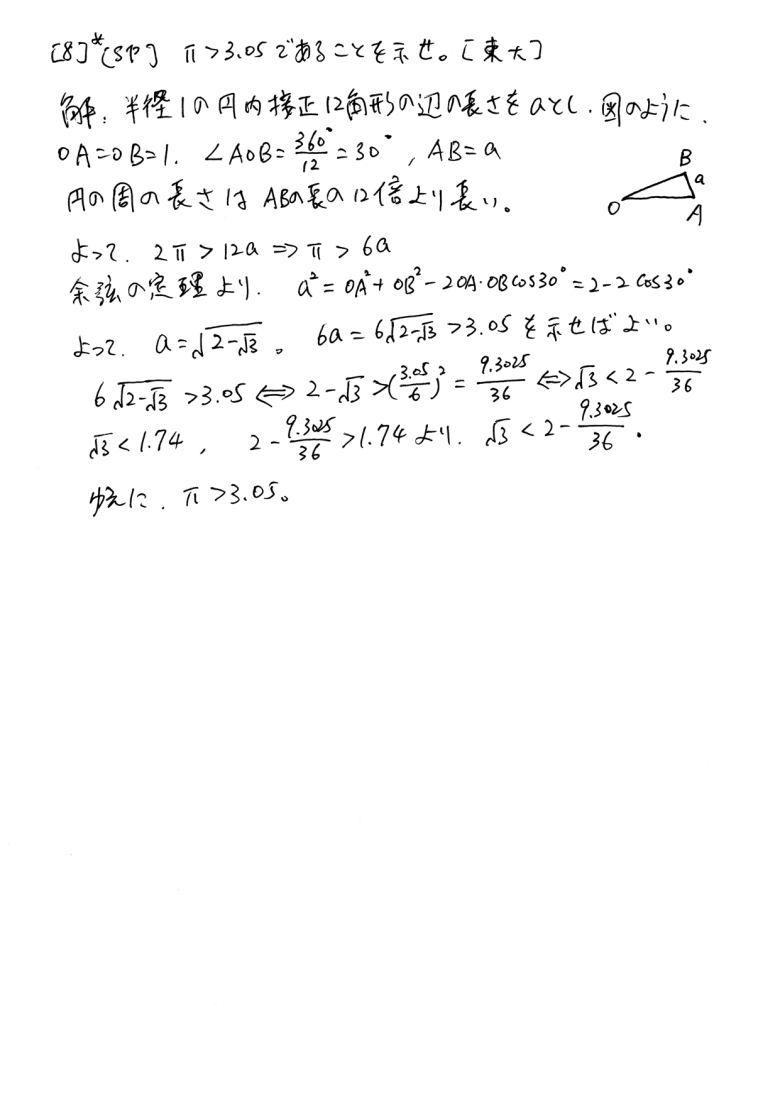 [8]*(5点) π>3.05であることを示せ。[東大]
解: 半径1の円内接正12角形の辺の長さをaとし、図のように、
OA=OB=1. ∠AOB=360°/12=30°, AB=a
円の周の長さはABの長の12倍より長い。
B
a
O
A
よって. 2π>12a ⇒ π>6a
余弦の定理より. a²=OA²+OB²-2OA·OBcos30°=2-2cos30°
よって. a=√(2-√3)。 6a=6√(2-√3)>3.05を示せばよい。
6√(2-√3)>3.05 ⇔ 2-√3>(3.05/6)²=9.3025/36 ⇔ √3<2-9.3025/36
√3<1.74, 2-9.3025/36>1.74より. √3<2-9.3025/36.
ゆえに. π>3.05。